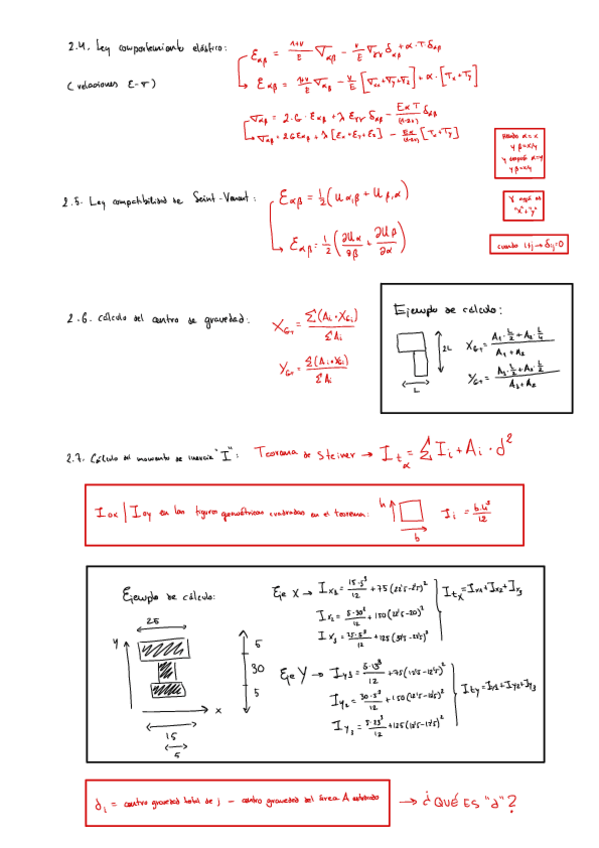 2.4. Ley comportamiento elástico:
(relaciones ε-σ)
ε_αβ = (1+ν)/E σ_αβ - ν/E σ_γγ δ_αβ + α·T δ_αβ
ε_αβ = (1+ν)/E σ_αβ - ν/E [σ_x + σ_y + σ_z] + α·[T_x + T_y]
σ_αβ = 2·G·ε_αβ + λ ε_γγ δ_αβ - EαT/(1-2ν) δ_αβ
σ_αβ = 2Gε_αβ + λ[ε_x + ε_y + ε_z] - Eα/(1-2ν) [T_x + T_y]
α=x
y β=x,y
y α=y
Y aquí es
"x"+"y"
cuando i≠j → δij=0
2.5. Ley compatibilidad de Saint-Venant:
ε_αβ = 1/2 (u_α,β + u_β,α)
ε_αβ = 1/2 (∂u_α/∂β + ∂u_β/∂α)
2.6. cálculo del centro de gravedad:
X_G = Σ(A_i·X_Gi)/ΣA_i
Y_G = Σ(A_i·Y_Gi)/ΣA_i
Ejemplo de cálculo:
2L
L
X_G =
A_1 + A_2
Y_G =
A_1 + A_2
2.7. Cálculo del momento de inercia "I": Teorema de Steiner → I_t = Σ I_i + A_i · d²
α
I ox | I oy en las figuras geométricas cuadradas en el teorema: h b I_i = b·h³/12
Ejemplo de cálculo:
25
y
5
30
5
x
15
5
Eje X → I_x1 = 15·5³/12 + 75(22'5-2'5)²
I_x2 = 5·30³/12 + 150(22'5-20)²
I_x3 = 25·5³/12
I_tx = I_x1 + I_x2 + I_x3
Eje Y → I_y1 = 5·15³/12 + 75(12'5-12'5)²
I_y2 = 30·5³/12 + 150(12'5-12'5)²
I_y3 = 5·25³/12 + 125(12'5-12'5)²
I_ty = I_y1 + I_y2 + I_y3
d_i = centro gravedad total de j - centro gravedad del área A → ¿QUÉ ES "d"?